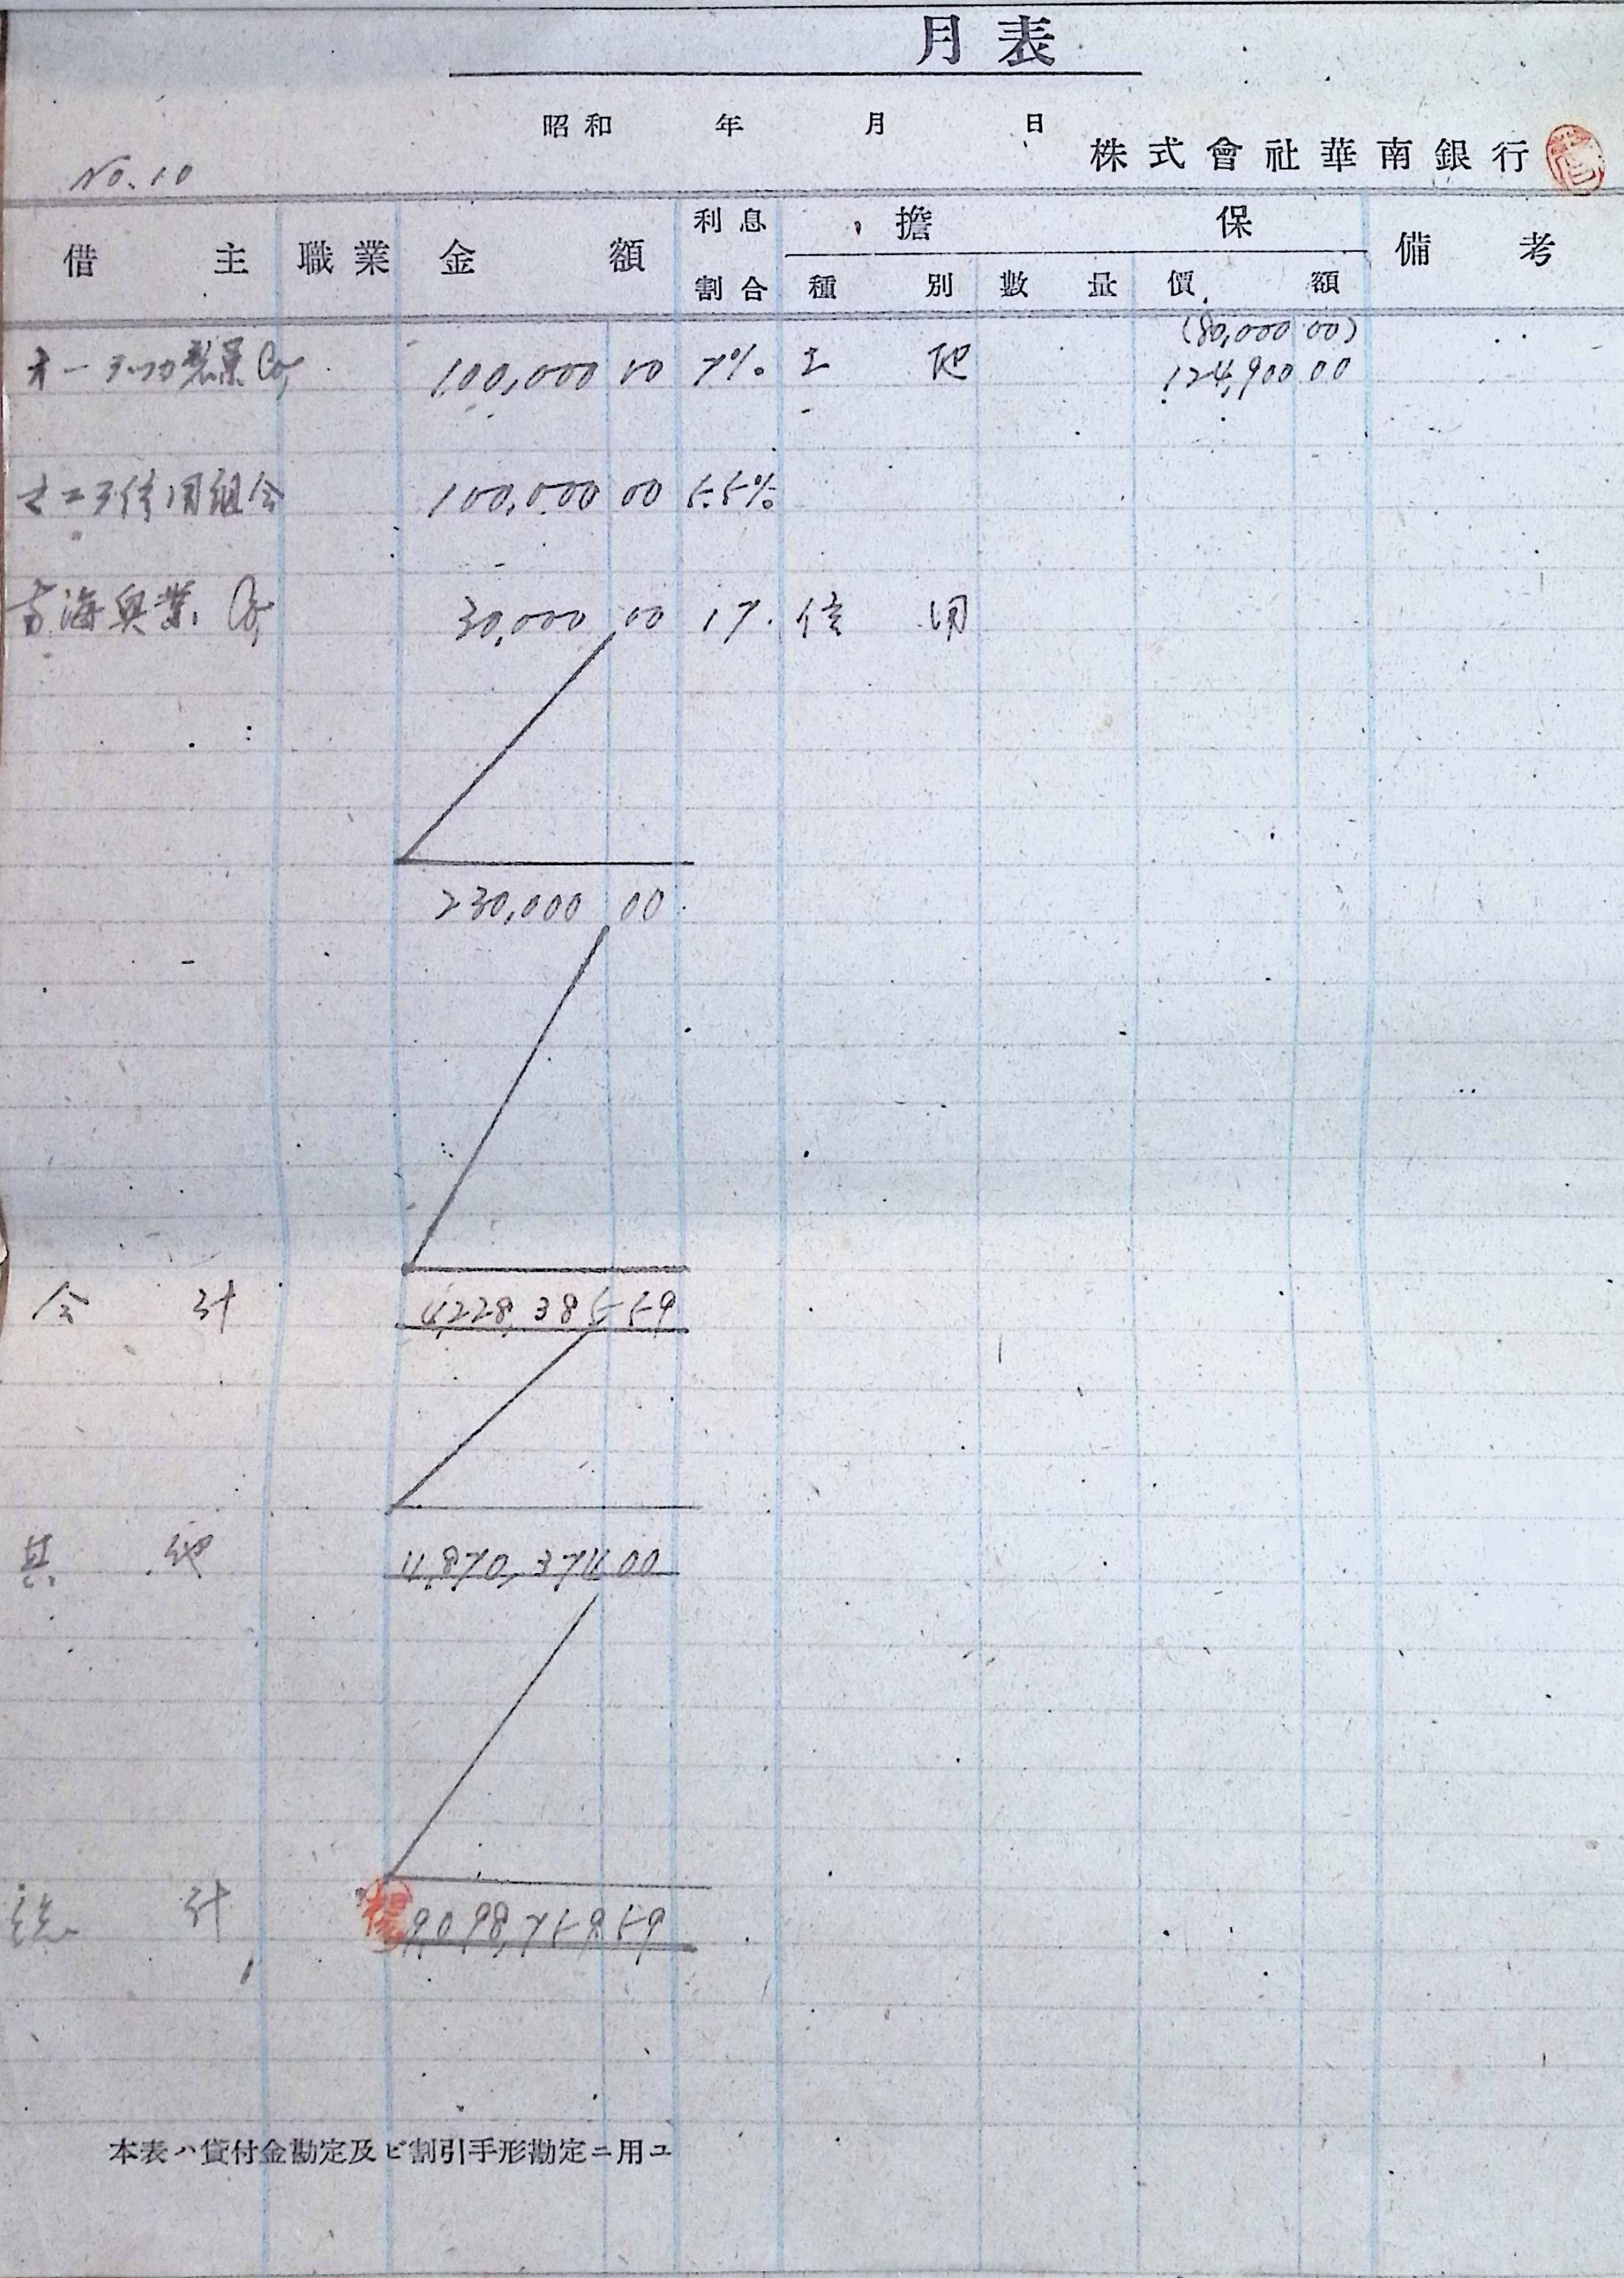 月表
昭和 年 月 日
株式會社華南銀行
No. 10
借主 職業 金額 利息割合 擔保 備考
種別 數量 價額
(80,000 00)
製菓 Co, 100,000 00 7% 土地 124,900 00
信用組合 100,000 00 5.5%
南海興業 Co, 30,000 00 17. 信用
230,000 00
合計 4,228,385 59
其他 4,870,374 00
総計 9,098,759 59
楊
本表ハ貸付金勘定及ビ割引手形勘定ニ用ユ